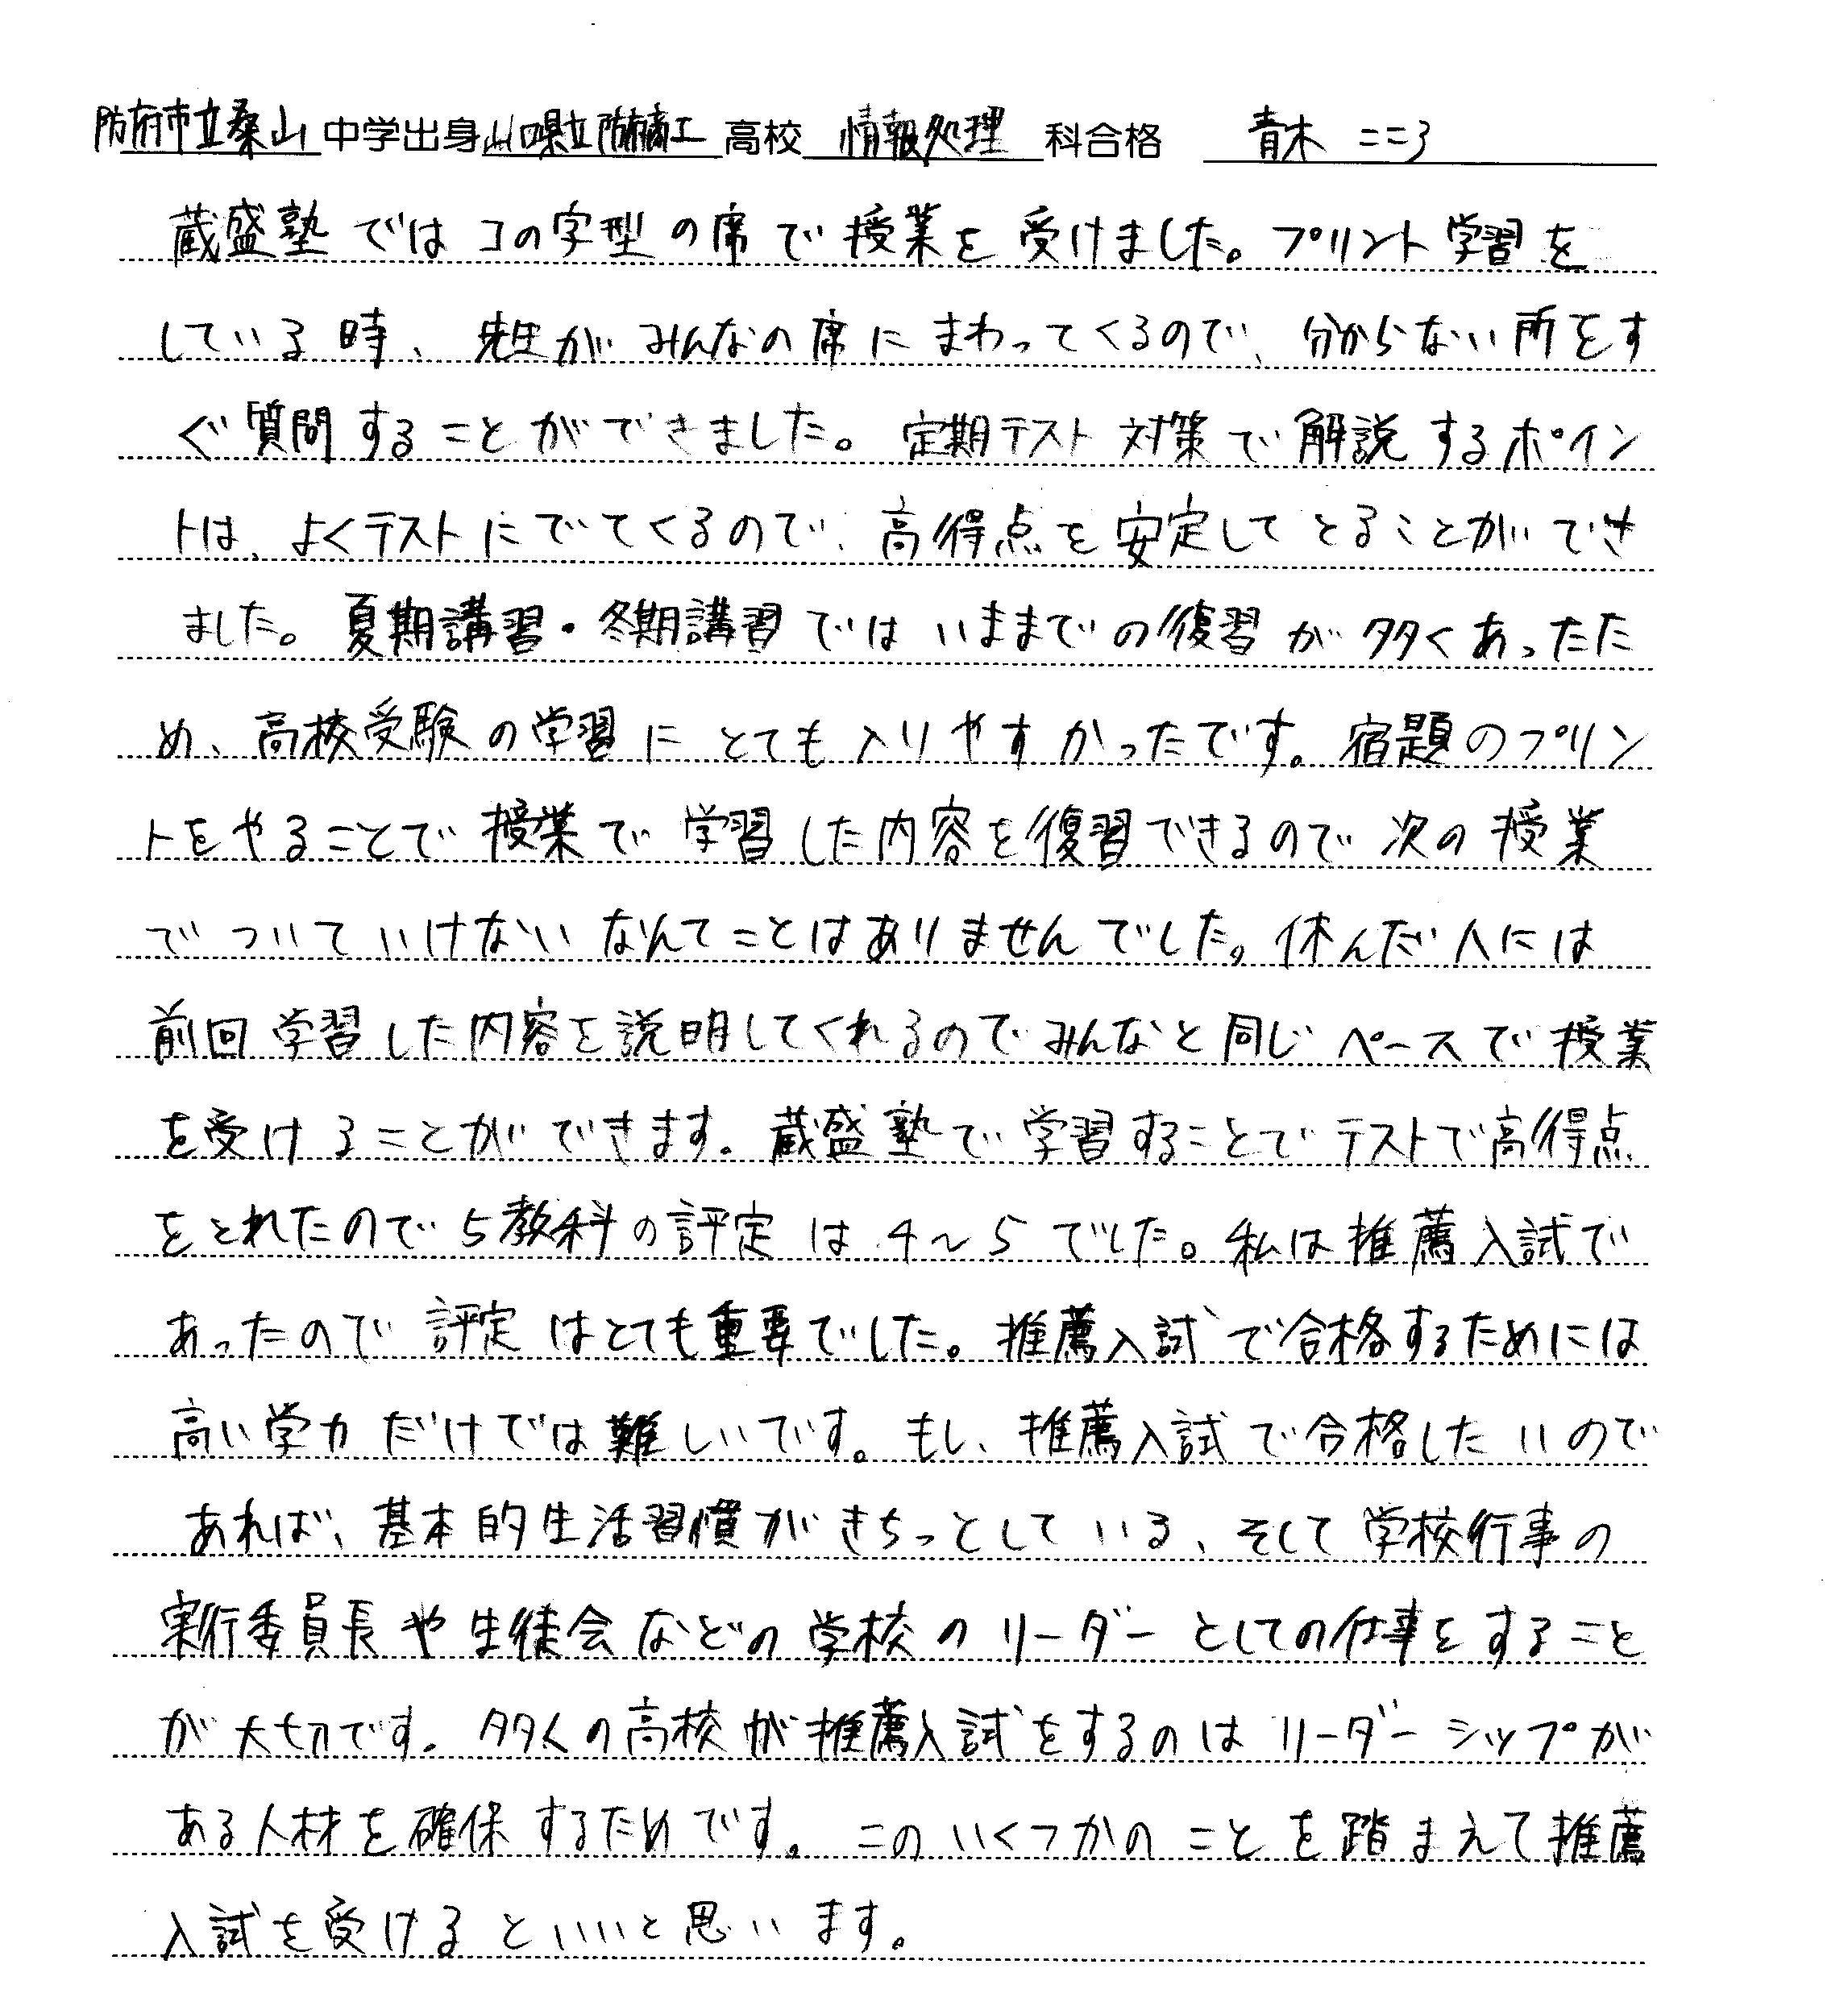 防府市立桑山中学出身山口県立防府商工高校 情報処理 科合格 青木 こころ
蔵盛塾ではコの字型の席で授業を受けました。プリント学習を
している時、先生がみんなの席にまわってくるので、分からない所をす
ぐ質問することができました。定期テスト対策で解説するポイン
トは、よくテストにでてくるので、高得点を安定してとることができ
ました。夏期講習・冬期講習ではいままでの復習が多くあったた
め、高校受験の学習にとても入りやすかったです。宿題のプリン
トをやることで授業で学習した内容を復習できるので次の授業
でついていけないなんてことはありませんでした。休んだ人には
前回学習した内容を説明してくれるのでみんなと同じペースで授業
を受けることができます。蔵盛塾で学習することでテストで高得点
をとれたので5教科の評定は4~5でした。私は推薦入試で
あったので評定はとても重要でした。推薦入試で合格するためには
高い学力だけでは難しいです。もし、推薦入試で合格したいので
あれば、基本的生活習慣がきちっとしている、そして学校行事の
実行委員長や生徒会などの学校のリーダーとしての仕事をすること
が大切です。多くの高校が推薦入試をするのはリーダーシップが
ある人材を確保するためです。このいくつかのことを踏まえて推薦
入試を受けるといいと思います。